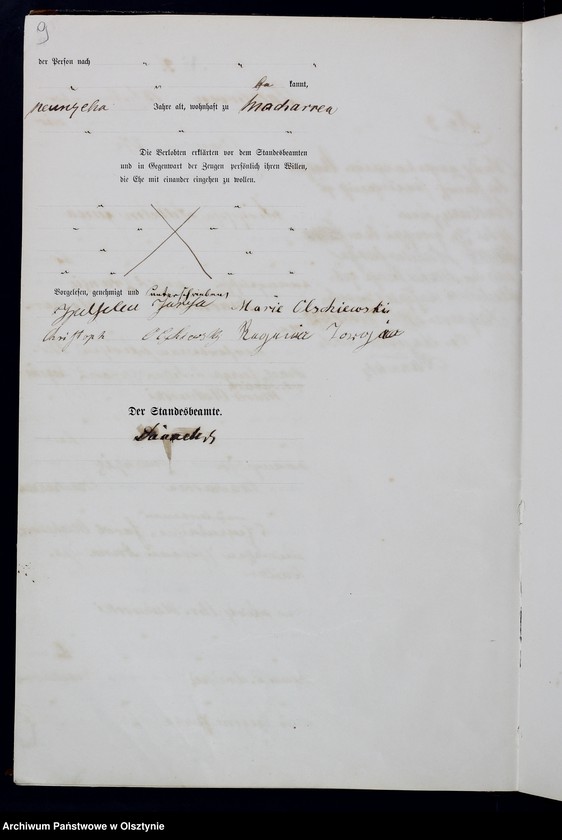 9
der Person nach " " "
" " be kannt,
neunzehn Jahre alt, wohnhaft zu Macharren
" " "
Die Verlobten erklärten vor dem Standesbeamten
und in Gegenwart der Zeugen persönlich ihren Willen,
die Ehe mit einander eingehen zu wollen.
Vorgelesen, genehmigt und unterschrieben
Marie Olschiewski
Christoph
Der Standesbeamte.
Archiwum Państwowe w Olsztynie